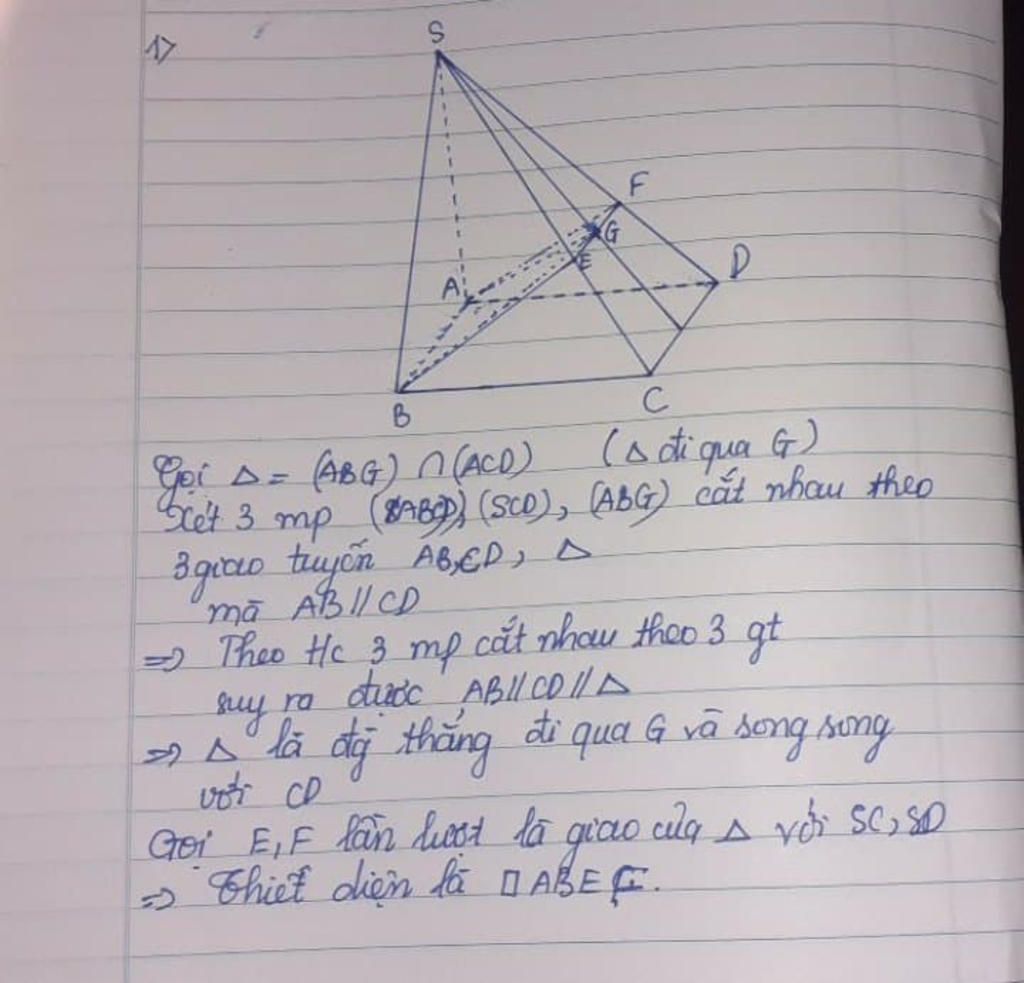 1)
S
F
G
E
D
A
B
C
Gọi Δ = (ABG) ∩ (ACD) (Δ đi qua G)
Xét 3 mp (ABCD), (SCD), (ABG) cắt nhau theo
3 giao tuyến AB, CD, Δ
mà AB // CD
=> Theo t/c 3 mp cắt nhau theo 3 gt
suy ra được AB // CD // Δ
=> Δ là đg thẳng đi qua G và song song
với CD
Gọi E, F lần lượt là giao của Δ với SC, SD
=> Thiết diện là □ABEF.